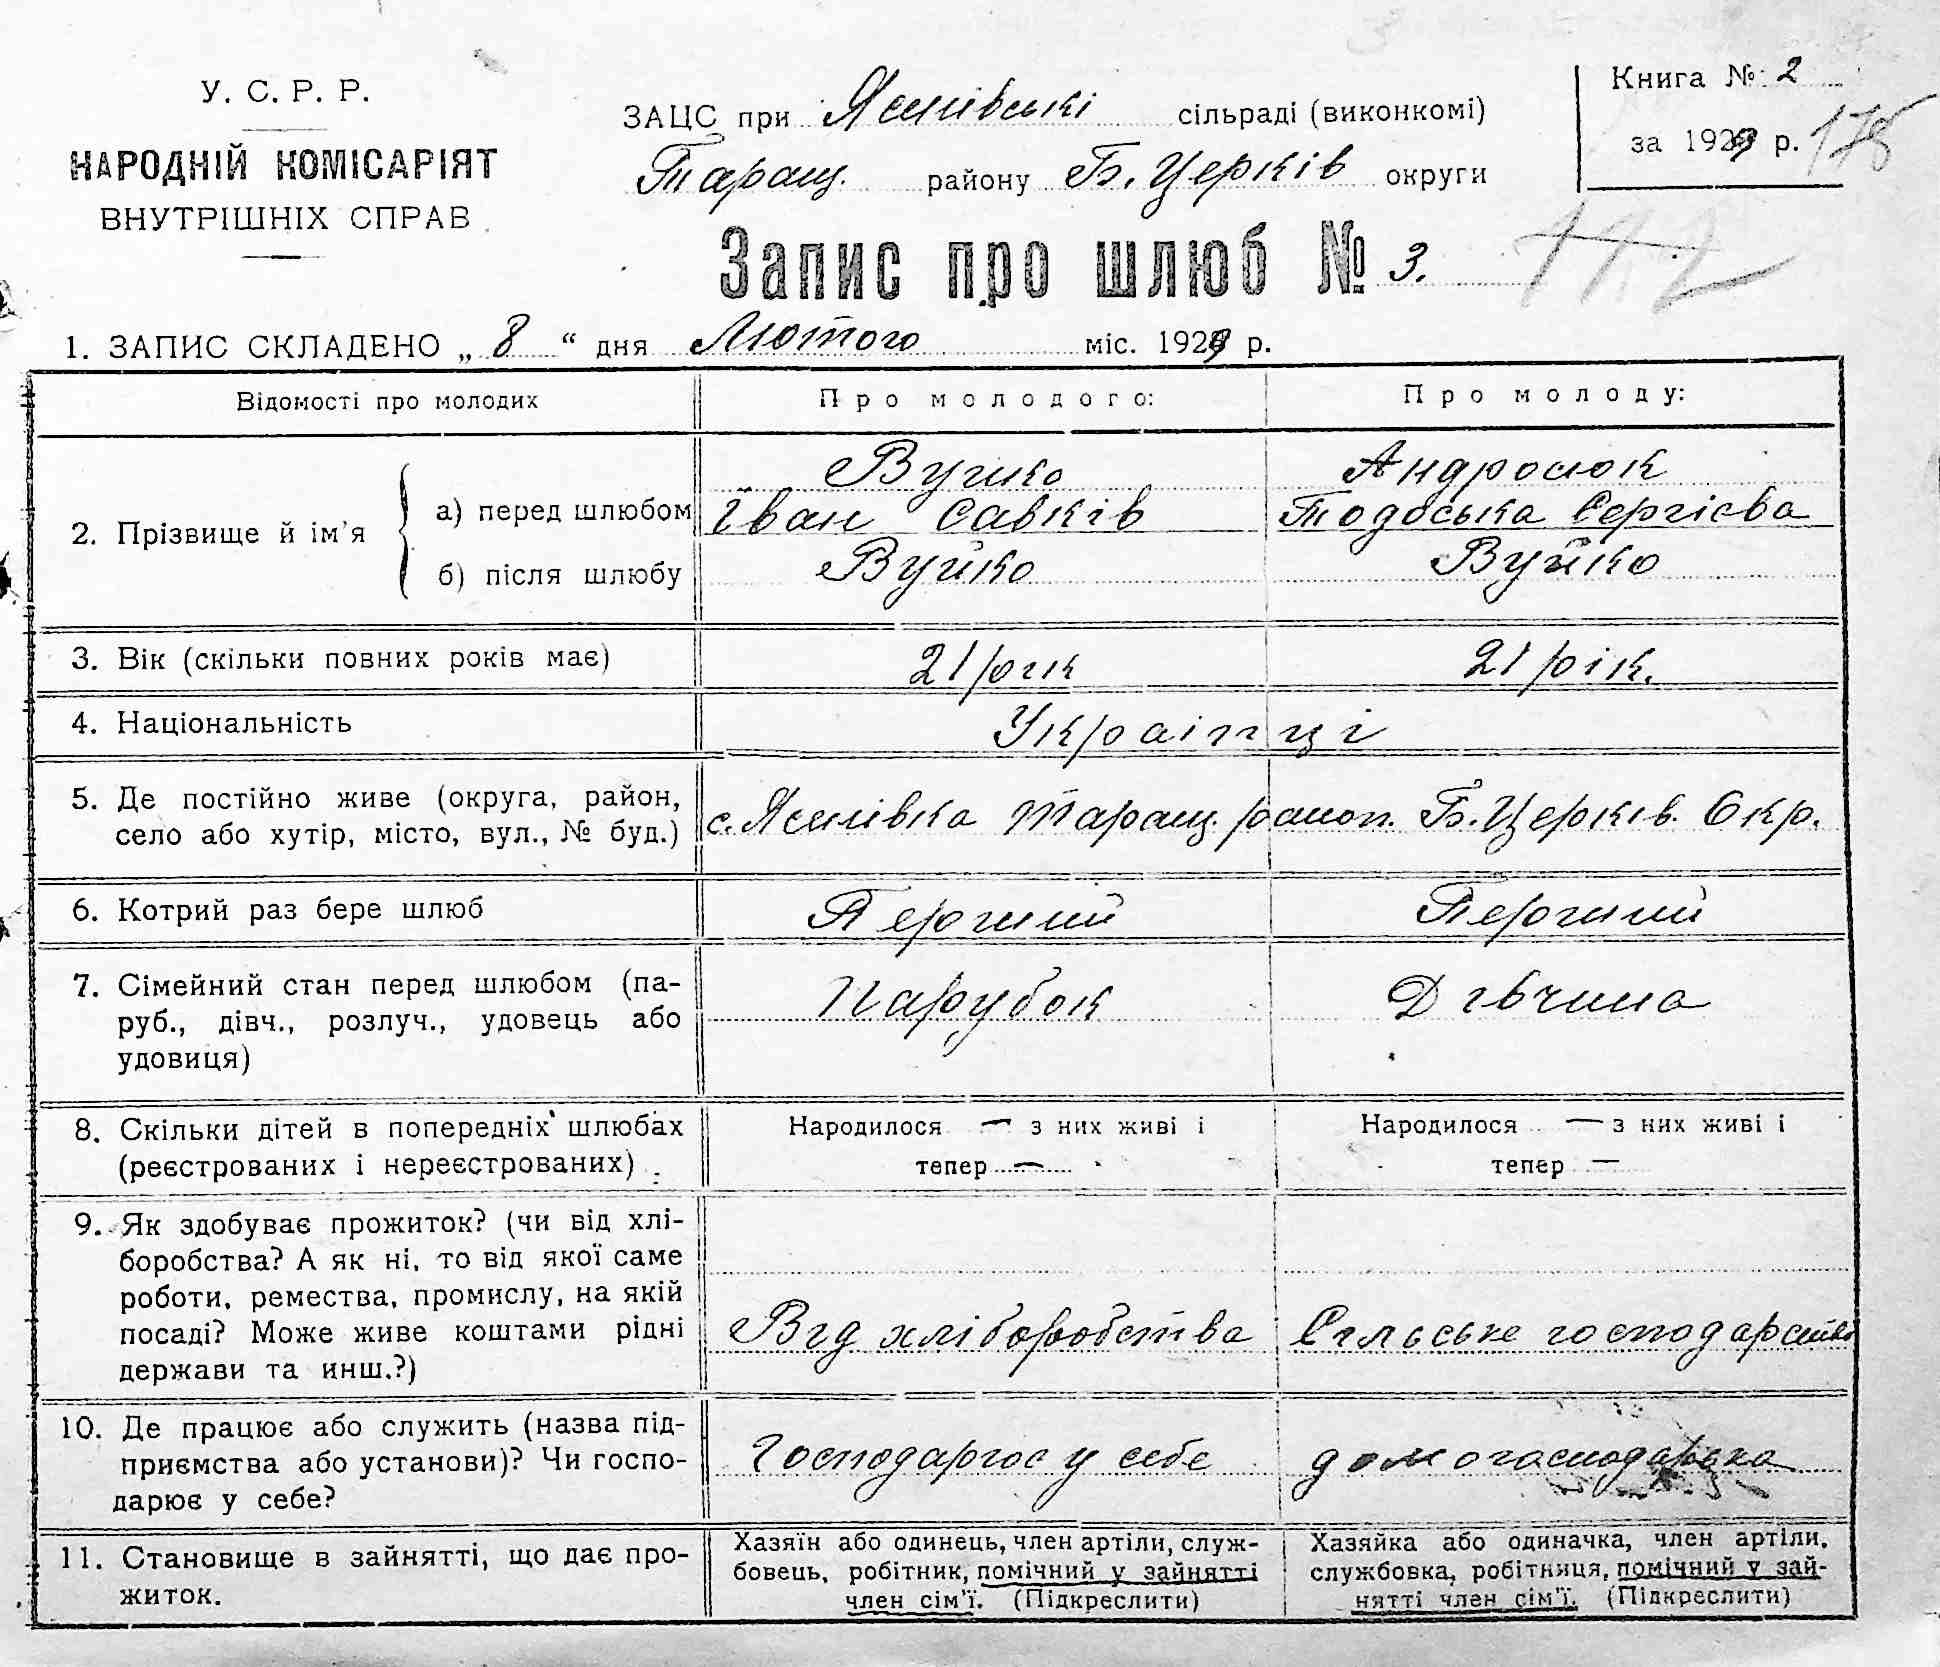 У. С. Р. Р.
НАРОДНІЙ КОМІСАРІЯТ
ВНУТРІШНІХ СПРАВ
ЗАЦС при Яснівські сільраді (виконкомі)
Таращ. району Б. Церків округи
Книга № 2
за 1929 р. 178
Запис про шлюб № 3.
112
1. ЗАПИС СКЛАДЕНО „ 8 “ дня Лютого міс. 1929 р.
Відомості про молодих
Про молодого:
Про молоду:
2. Прізвище й ім’я
а) перед шлюбом
Вуйко
Іван Савків
Андросюк
Тодоська Сергієва
б) після шлюбу
Вуйко
Вуйко
3. Вік (скільки повних років має)
21 рік
21 рік.
4. Національність
Українці
5. Де постійно живе (округа, район,
село або хутір, місто, вул., № буд.)
с. Яснівка Таращ. район. Б. Церків. Окр.
6. Котрий раз бере шлюб
Перший
Перший
7. Сімейний стан перед шлюбом (па-
руб., дівч., розлуч., удовець або
удовиця)
Парубок
Дівчина
8. Скільки дітей в попередніх шлюбах
(реєстрованих і нереєстрованих)
Народилося — з них живі і
тепер —
Народилося — з них живі і
тепер —
9. Як здобуває прожиток? (чи від хлі-
боробства? А як ні, то від якої саме
роботи, ремества, промислу, на якій
посаді? Може живе коштами рідні
держави та инш.?)
Від хліборобства
Сільське господарство
10. Де працює або служить (назва під-
приємства або установи)? Чи госпо-
дарює у себе?
Господарює у себе
домогосподарька
11. Становище в зайнятті, що дає про-
житок.
Хазяїн або одинець, член артіли, служ-
бовець, робітник, помічний у зайнятті
член сім’ї. (Підкреслити)
Хазяйка або одиначка, член артіли,
службовка, робітниця, помічний у зай-
нятті член сім’ї. (Підкреслити)